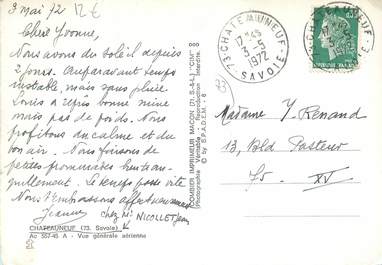 3 mai 72 12€
Chère Yvonne,
Nous avons du soleil depuis
2 jours. Auparavant temps
instable, mais sans pluie.
Louis a repris bonne mine
mais pas de poids. Nous
profitons du calme et du
bon air. Nous faisons de
petites promenades bien tran-
quillement. Le temps passe vite
Nous t'embrassons affectueusement
Jeanne chez Mr NICOLLET Jean
CHATEAUNEUF (73. Savoie)
Ac 557-45 A - Vue générale aérienne
COMBIER IMPRIMEUR MACON (71. S.-&-L.) "CIM"
(Photographie Véritable) - Reproduction Interdite.
by S.P.A.D.E.M. - 6
73 CHATEAUNEUF
3-5
1972
SAVOIE
73
Madame Y. Renand
13, Bld Pasteur
75 - XV